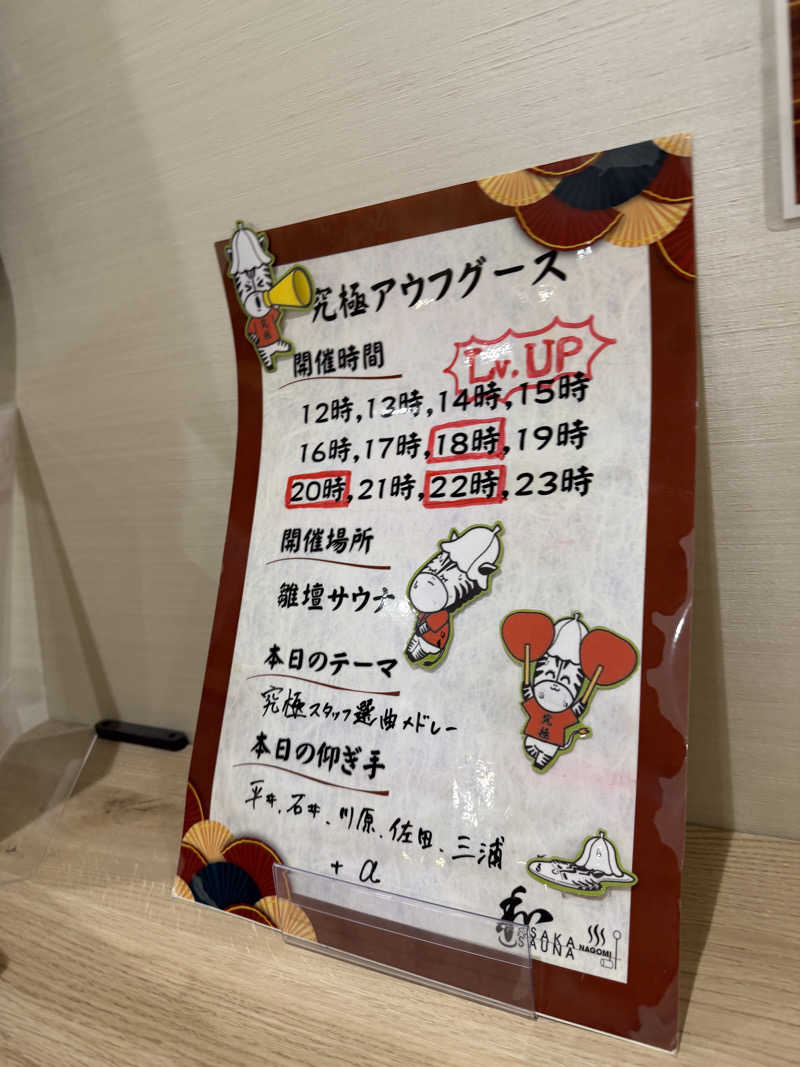 究極アウフグース
開催時間
Lv.UP
12時,13時,14時,15時
16時,17時,18時,19時
20時,21時,22時,23時
開催場所
雛壇サウナ
本日のテーマ
究極スタッフ選曲メドレー
究極
本日の仰ぎ手
平井、石井、川原、佐田、三浦
+α
和
OSAKA
SAUNA NAGOMI